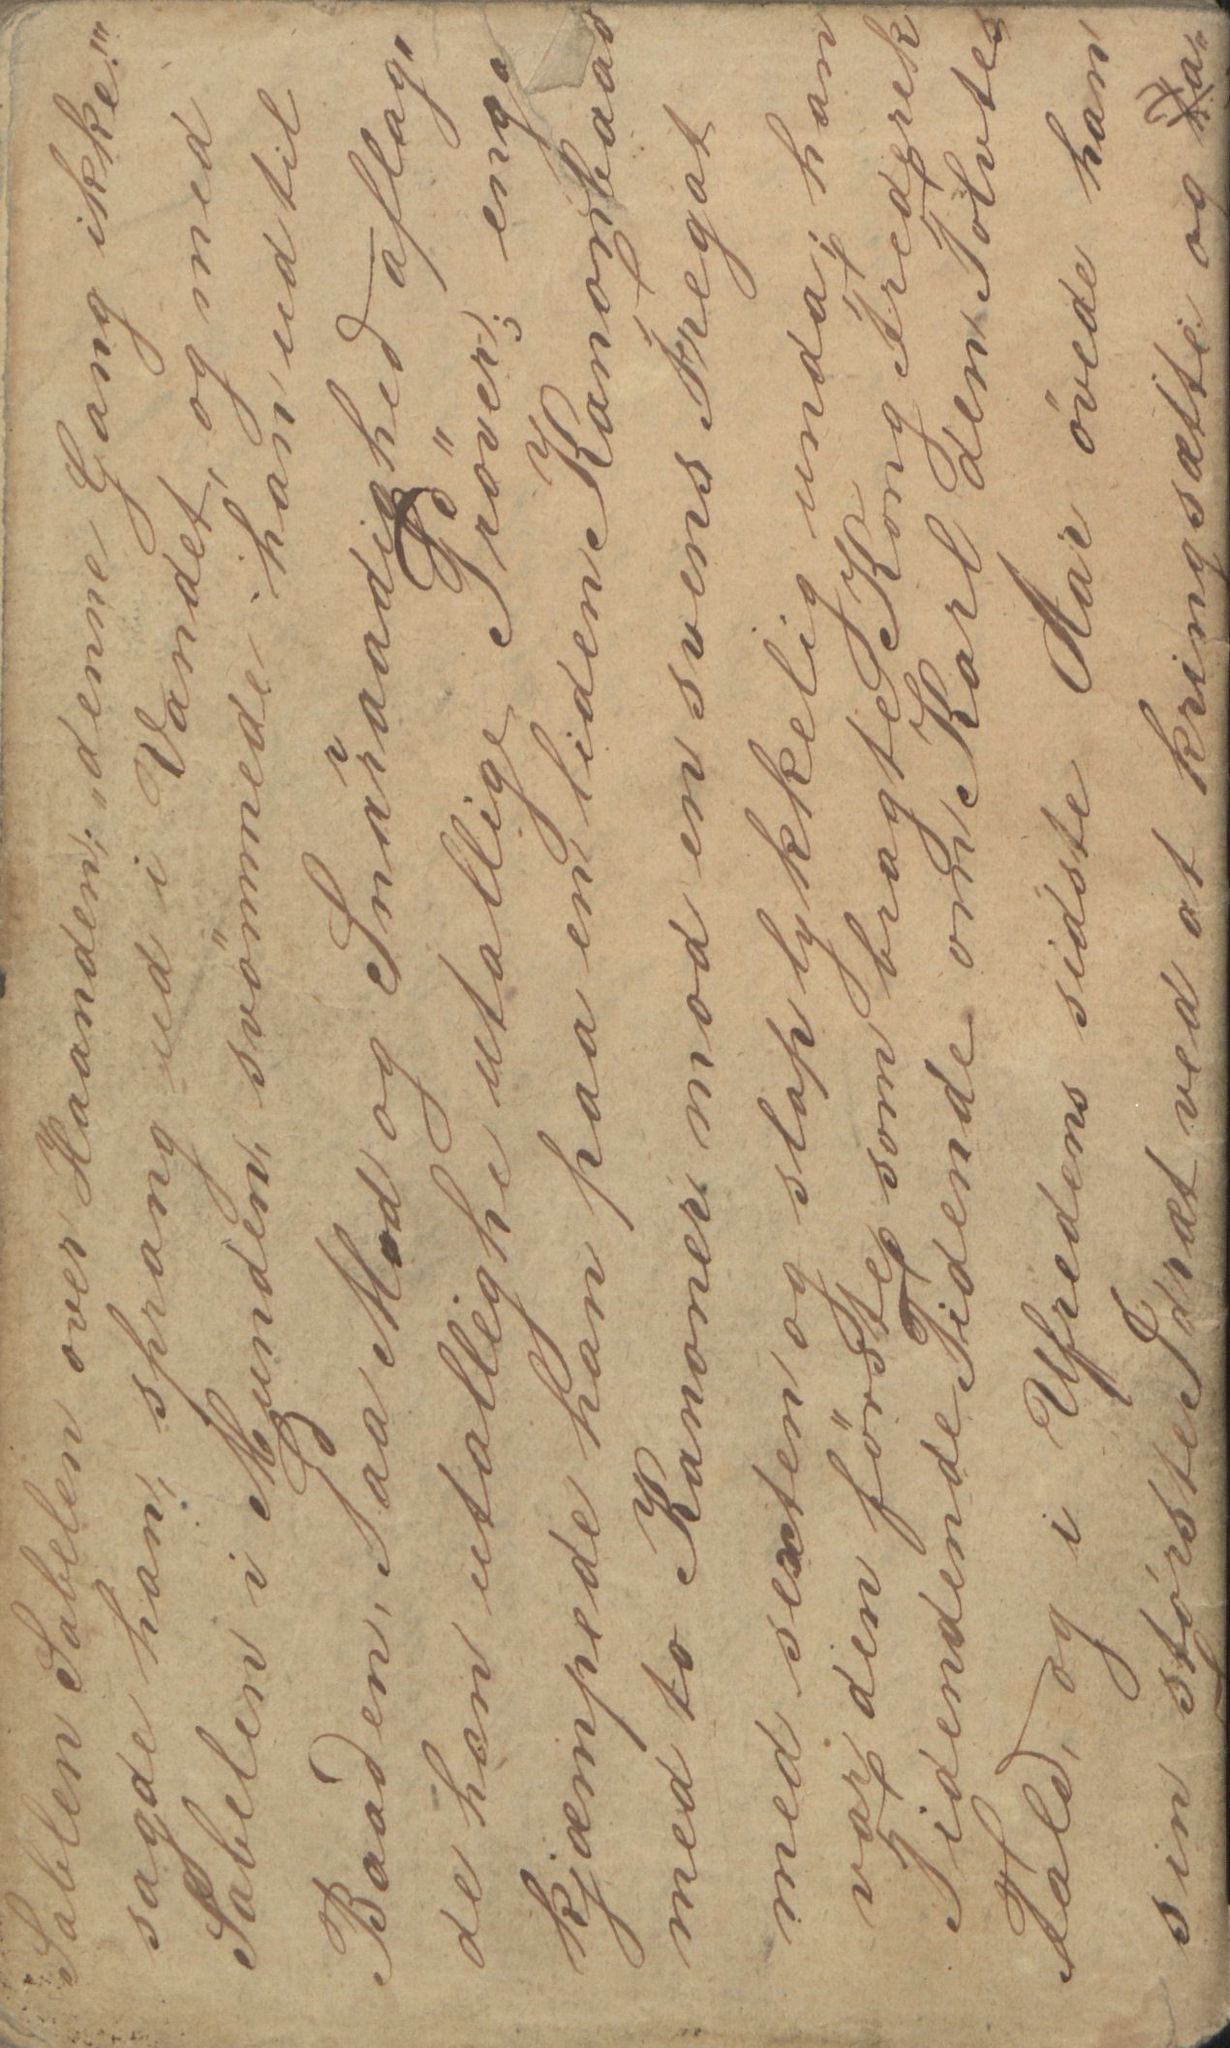 Sablen Sabelen over Haanden; „denne Gang ikke!"
sagde han, sprang ud i Vandet, og med
Sabelen i Munden, svömmede han ud til
Baaden, Paa Mod og Snāraadighed aflag"
de han utallighe utallige Pröver; eng
kjæmpede han paa en liden Kanonbaad
med to Kanoner mod en svensk Fregat
med sexten og slap lykkelig unda; han
var den förste, som bragte Kong Fredrek
Tidende Tidende om Karl den Tolvtes
Fald, og i Ufredens sidste Aar övede han
sin störste Idræt ved at kringsætte og